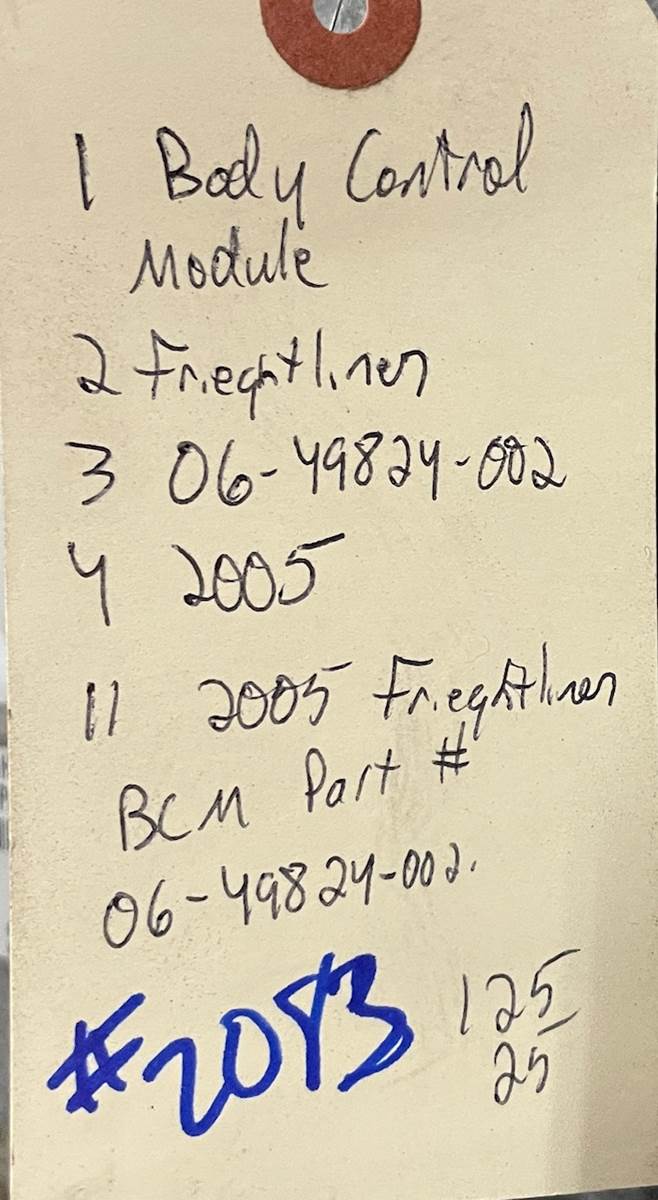 1 Body Control
Module
2 Frieghtliner
3 06-49824-002
4 2005
11 2005 Frieghtliner
BCM Part #
06-49824-002.
#2083
125
25